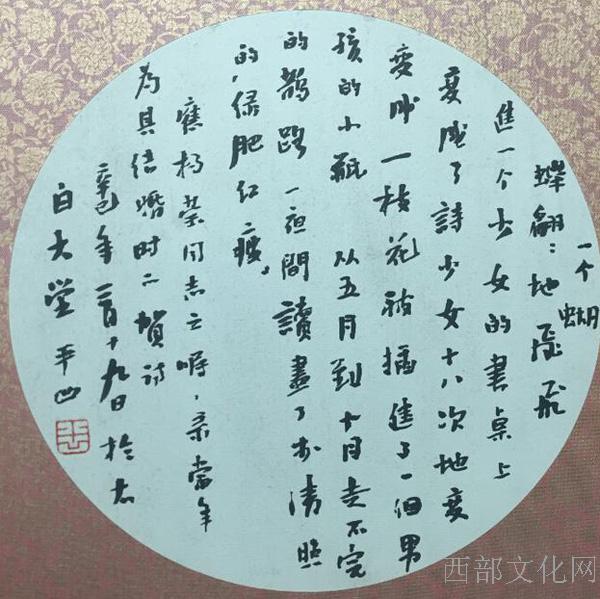 一个蝴
蝶翩:地飛飛
進一个少女的書桌上
变成了詩少女十八次地变
变成一枝花被插進了一個男
孩的小瓶 从五月到十月走不完
的鹊路一夜間讀盡了李清照
的,绿肥红瘦。
應楊同志之嘱,录當年
為其结婚时之賀诗
辛巳年二月十九日於太
白大堂 平凹
西部文化网